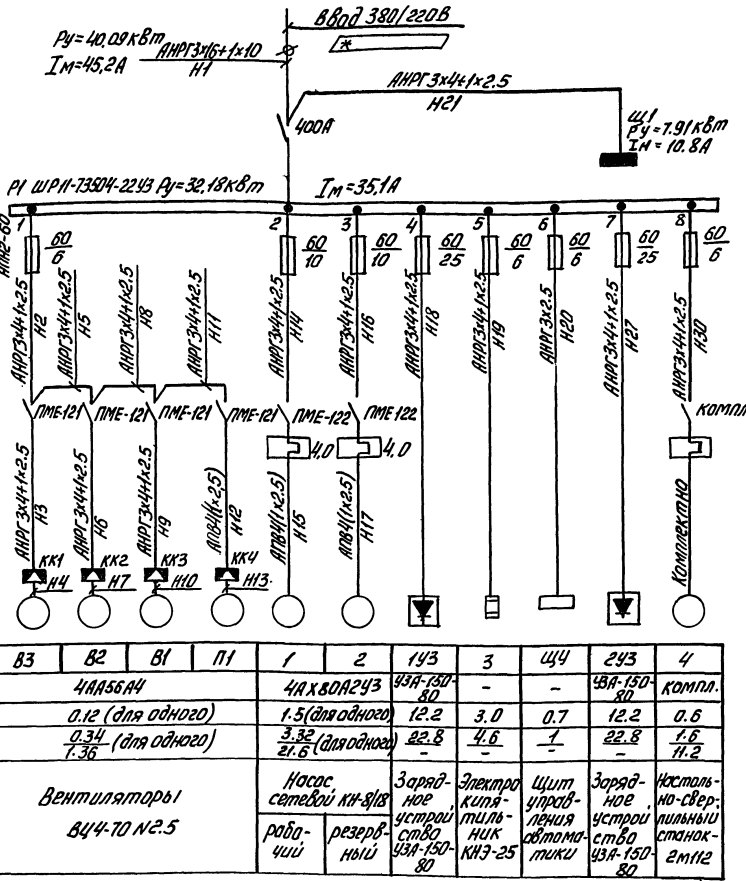 Ввод 380/220В
*
Ру=40,09кВт
Iм=45,2А
АНРГ3х16+1х10
Н1
АНРГ3х4+1х2.5
Н21
400А
Щ1
Ру=7.91кВт
Iн=10.8А
Р1 ШР11-73504-22У3 Ру=32,18кВт Iм=35,1А
1 2 3 4 5 6 7 8
НПН2-60
60/6 60/10 60/10 60/25 60/6 60/6 60/25 60/6
АНРГ3х4+1х2.5 Н2
АНРГ3х4+1х2.5 Н5
АНРГ3х4+1х2.5 Н8
АНРГ3х4+1х2.5 Н11
АНРГ3х4+1х2.5 Н14
АНРГ3х4+1х2.5 Н16
АНРГ3х4+1х2.5 Н18
АНРГ3х4+1х2.5 Н19
АНРГ3х2.5 Н20
АНРГ3х4+1х2.5 Н27
АНРГ3х4+1х2.5 Н30
ПМЕ-121 ПМЕ-121 ПМЕ-121 ПМЕ-121 ПМЕ-122 ПМЕ122 КОМПЛ
4,0 4,0
АНРГ3х4+1х2.5 Н3
АНРГ3х4+1х2.5 Н6
АНРГ3х4+1х2.5 Н9
АПВ4(1х2,5) Н12
АПВ4(1х2.5) Н15
АПВ4(1х2.5) Н17
Комплектно
КК1 КК2 КК3 КК4
Н4 Н7 Н10 Н13
В3 В2 В1 П1 1 2 1У3 3 Щ4 2У3 4
4АА56А4 4АХ80А2У3 УЗА-150-80 - - УЗА-150-80 компл.
0.12 (для одного) 1.5 (для одного) 12.2 3.0 0.7 12.2 0.6
0.34/1.36 (для одного) 3.32/21.6 (для одного) 22.8/- 4.6/- 1/- 22.8/- 1.6/11.2
Вентиляторы
ВЦ4-70 N2.5
Насос
сетевой КН-8/18
рабо-
чий
резерв-
ный
Заряд-
ное
устрой
ство
УЗА-150-
80
Электро
кипя-
тиль-
ник
КНЭ-25
Щит
управ-
ления
автома-
тики
Заряд-
ное
устрой
ство
УЗА-150-
80
Настоль-
но-свер-
лильный
станок-
2м112